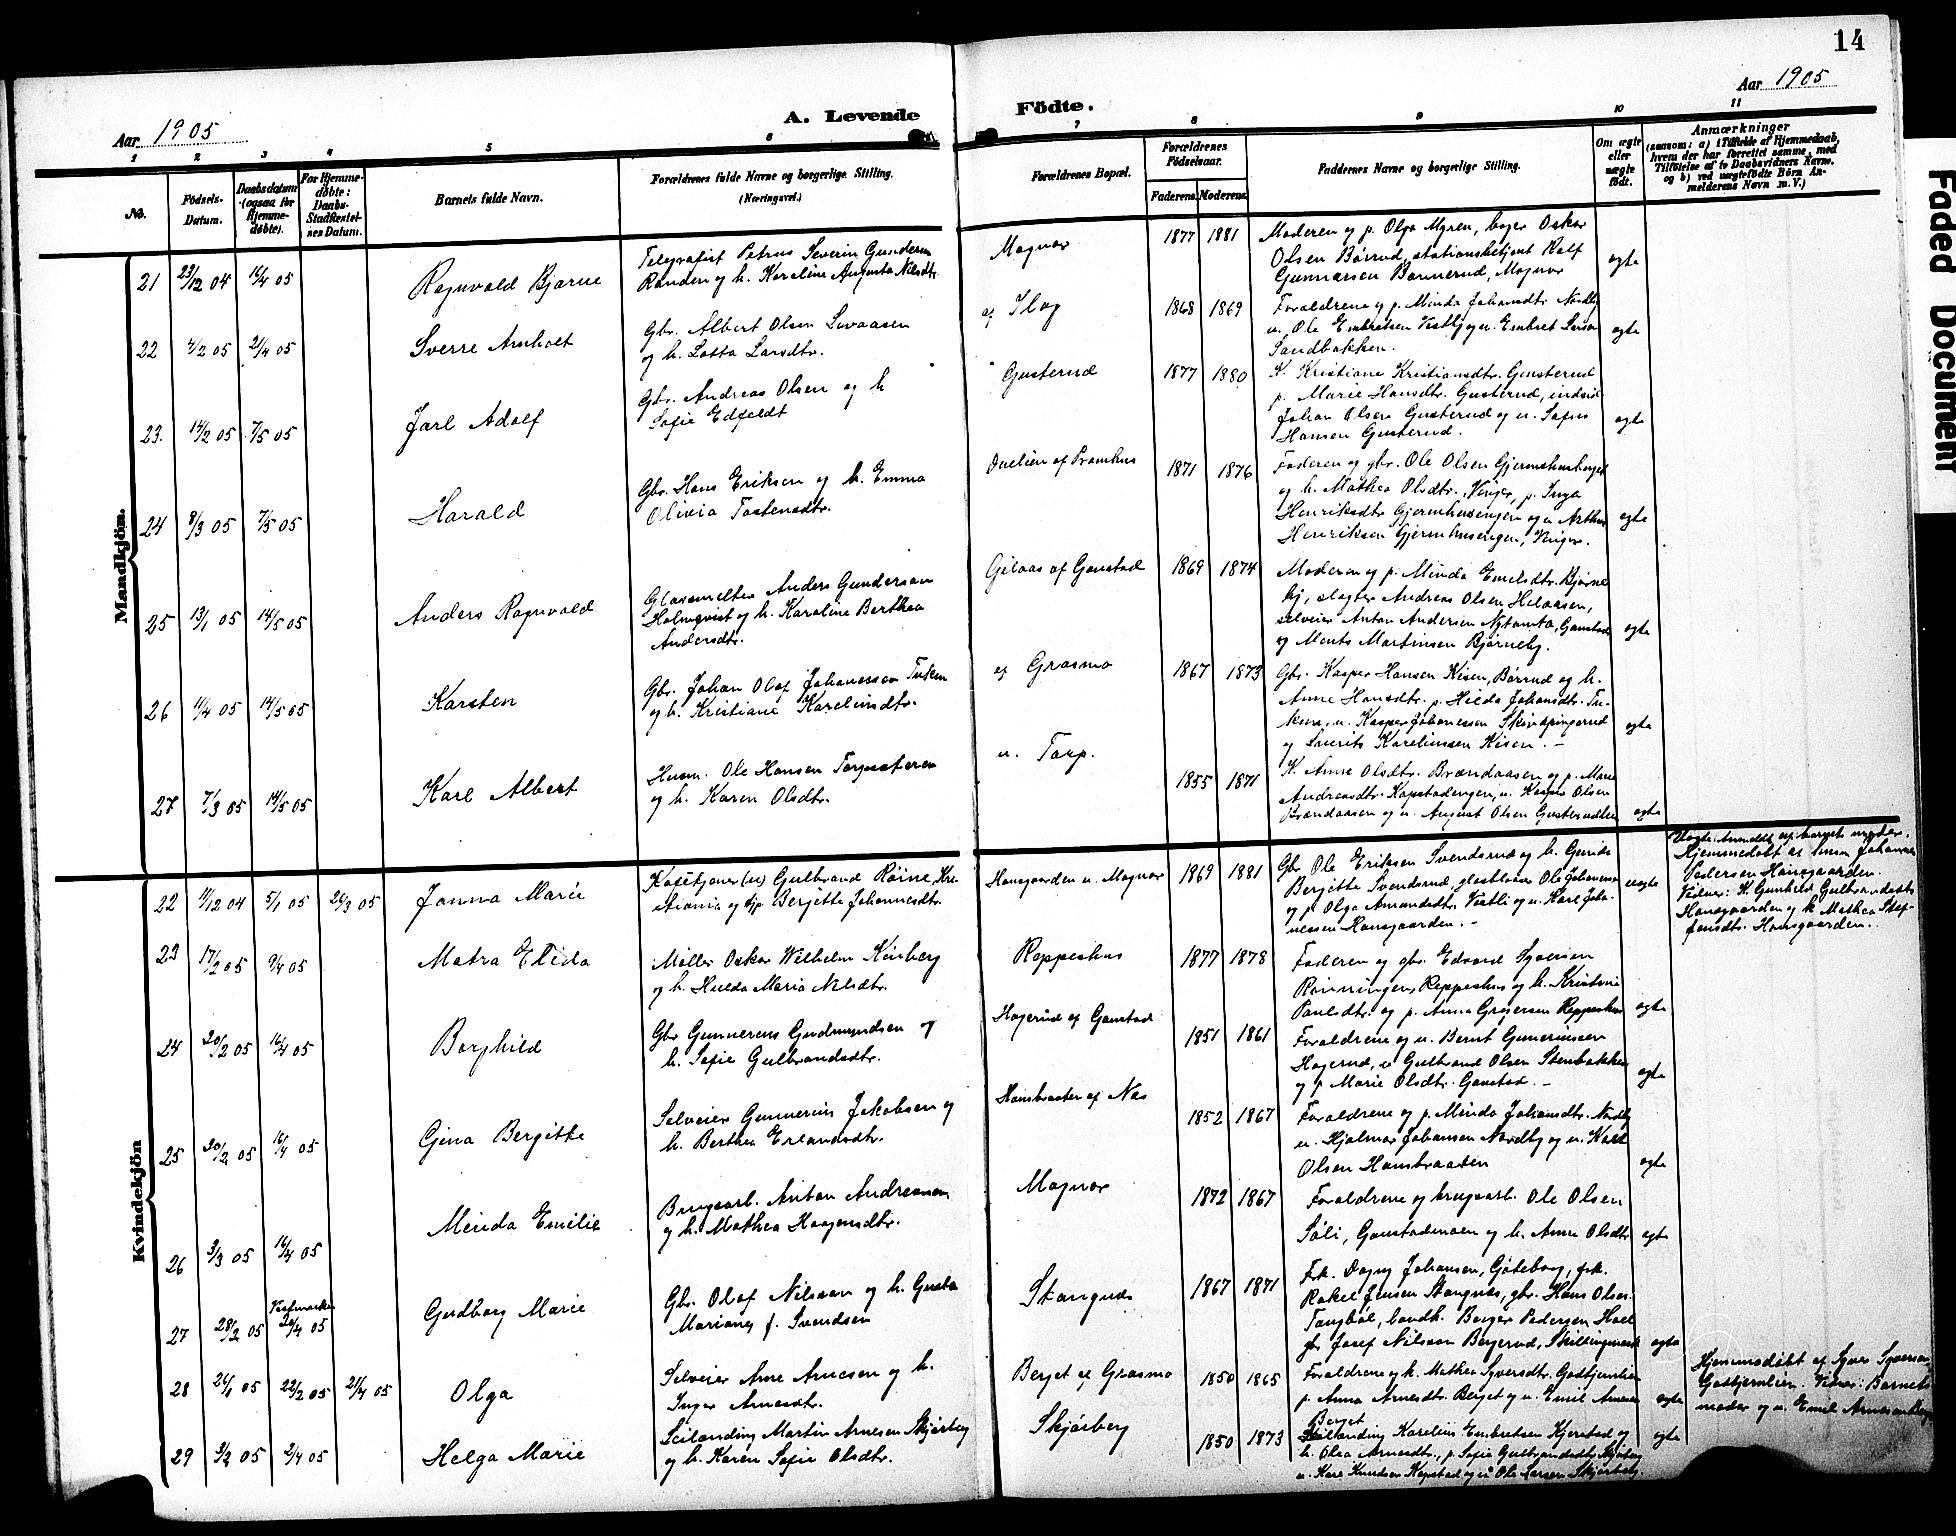 14
Aar 1905
A. Levende
Födte.
Aar 1905
1 2 3 4 5 6 7 8 9 10 11
No.
Födsels-
Datum.
Daabsdatum
(ogsaa for
Hjemme-
döbte).
For Hjemme-
döbte:
Daabs-
Stadfæstel-
nes Datum.
Barnets fulde Navn.
Forældrenes fulde Navne og borgerlige Stilling.
(Næringsvei.)
Forældrenes Bopæl.
Forældrenes
Födselsaar.
Faderens. Moderens.
Faddernes Navne og borgerlige Stilling.
Om ægte
eller
uægte
födt.
Anmærkninger
(saasom: a) i Tilfælde af Hjemmedaab,
hvem der har forrettet samme, med
Tilföielse af to Daabsvidners Navne.
og b) ved uægtefödte Börn An-
melderens Navn m. V.)
Mandkjön.
21 23/12 04 16/4 05 Ragnvald Bjarne
Telegrafist Petrus Severin Gundersen
Randen og h. Karoline Augusta Nilsdtr.
Magnor 1877 1881
Moderen og p. Olga Myren, bager Oskar
Olsen Børrud, stationsbetjent Ralf
Gunnarsen Bannerud, Magnor
ægte
22 4/2 05 21/4 05 Sverre Arnholt
Gbr. Albert Olsen Levaasen
og h. Lotta Larsdtr.
af Ilag 1868 1869
Forældrene og p. Minda Johansdtr. Nordby
u. Ole Embretsen Vestby og u. Embret Larsen
Sandbakken.
ægte
23. 14/2 05 7/5 05 Jarl Adolf
Gbr. Andreas Olsen og h
Sofie Edfeldt
Gusterud 1877 1880
K. Kristiane Kristiansdtr. Gusterud
p. Marie Hansdtr. Gusterud, inderst
Johan Olsen Gusterud og u. Sofus
Hansen Gusterud.
ægte
24 8/3 05 7/5 05 Harald
Gbr. Hans Eriksen og h. Emma
Olivia Tostensdtr.
af Pramhus 1871 1876
Faderen og gbr. Ole Olsen Gjermshusberget
og h. Mathea Olsdtr. Vinger, p. Inga
Henriksdtr Gjermhusengen og u. Arthur
Henriksen Gjermhusengen, Vinger.
ægte
25 13/1 05 14/5 05 Anders Ragnvald
Glassmelter Anders Gundersen
Holmqvist og h. Karoline Berthea
Andersdtr.
Gilaas af Gaustad 1869 1874
Moderen og p. Minda Emilsdtr. Bjørne-
by, slagter Andreas Olsen Helaasen,
selveier Anton Andersen Nytomta, Gaustad
og Monts Martinsen Bjørneby.
ægte
26 11/4 05 14/5 05 Karsten
Gbr. Johan Olaf Johanessen Tuken
og h. Kristiane Kareliusdtr.
af Grasmo 1867 1873
Gbr. Kasper Hansen Kisen, Børrud og h.
Anne Hansdtr. p. Hilda Johansdtr. Tu-
ken, u. Kasper Johanessen Skindpungrud
og Laurits Kareliussen Kisen. –
ægte
27 7/3 05 14/5 05 Karl Albert
Husm. Ole Hansen Torpsæteren
og h. Karen Olsdtr.
u. Torp. 1855 1871
K. Anne Olsdtr. Brændaasen og p. Marie
Andreasdtr. Kapstadengen, u. Kasper Olsen
Brændaasen og u. August Olsen
ægte
Kvindekjön
22 11/12 04 5/1 05 26/3 05 Janna Marie
Kafétjener (u) Gulbrand Röine, Kri-
stiania og pp. Bergitte Johannesdtr.
Hansgaarden u. Magnor 1869 1881
Gbr Ole Eriksen Svendsrud og h. Gunda
Bergitte Svendsrud, glasblaaser Ole Johannesen
og p. Olga Amundsdtr. Vestli og u. Karl Joha-
nessen Hansgaarden. –
uægte
Uægte: Anmeldt af barnets mor.
Hjemmedøbt af husm. Johannes
Pedersen Hansgaarden.
Vidner: K. Gunhild Gulbrandsdtr.
Hansgaarden og k. Mathea Stef-
fensdtr. Hansgaarden.
23 17/2 05 9/4 05 Matra Elida
Møller Oskar Wilhelm Kinberg
og h. Hulda Maria Nilsdtr.
Roppeshus 1877 1878
Faderen og gbr. Edvard Syversen
Rønningen, Reppeshus og h. Kristine
Paulsdtr. og p. Anna Grøjersen Reppeshus
ægte
24 20/2 05 16/4 05 Borghild
Gbr Gunnerius Gudmundsen og
h. Sofie Gulbrandsdtr.
Hagerud af Gaustad 1851 1861
Forældrene og u. Bernt Gunneriusen
Hagerud, u Gulbrand Olsen Stenbakken
og p Marie Olsdtr. Gaustad. –
ægte
25 20/2 05 16/4 05 Gina Bergitte
Selveier Gunnerius Jakobsen og
h. Berthea Erlandsdtr.
Hansbraaten af Nas 1852 1867
Forældrene og p. Minda Johansdtr. Nordby
u. Hjalmar Johansen Nordby og u. Karl
Olsen Hansbraaten
ægte
26 3/3 05 16/4 05 Minda Emilie
Brugsarb. Anton Andreassen
og h. Mathea Haagensdtr.
Magnor 1872 1867
Forældrene og brugsarb. Ole Olsen
Sæli, Gaustadmoen og h. Anne Olsdtr
ægte
27 28/2 05 Vestmarka 30/4 05 Gudborg Marie
Gbr. Olaf Nilsson og h. Gusta
Mariane f. Svendsen
Stangnes 1867 1871
Frk. Dagny Johansen, Göteborg, frk.
Rakel Jensen Stangnæs, gbr. Hans Olsen
Tangböl, landh. Berger Pedersen Hoel
gbr Josef Nilsson Bergerud, Skillingmark
ægte
28 26/1 05 22/2 05 21/4 05 Olga
Selveier Arne Arnesen og h.
Inger Arnesdtr.
Berget af Grasmo 1850 1865
Forældrene og k. Mathea Syversdtr. Godtjernlien
p. Anna Arnesdtr. Berget og u. Emil Arnesen
Berget
ægte
Hjemmedøbt af Syver Syversen
Godtjernlien. Vidner: Barnets
moder og u. Emil Arnesen Berget
29 3/2 05 2/4 05 Helga Marie
Leilænding Martin Arnesen Skjøsberg
og h. Karen Sofie Olsdtr.
Skjøsberg 1850 1873
Leilænding Karelius Embretsen Kjerstad og
h. Olea Arnesdtr., p. Sofie Gulbrandsdtr. Skjøsberg
u. Karl Knudsen Kapstad og u. Ole Larsen Skjøsberg.
ægte
Faded Document